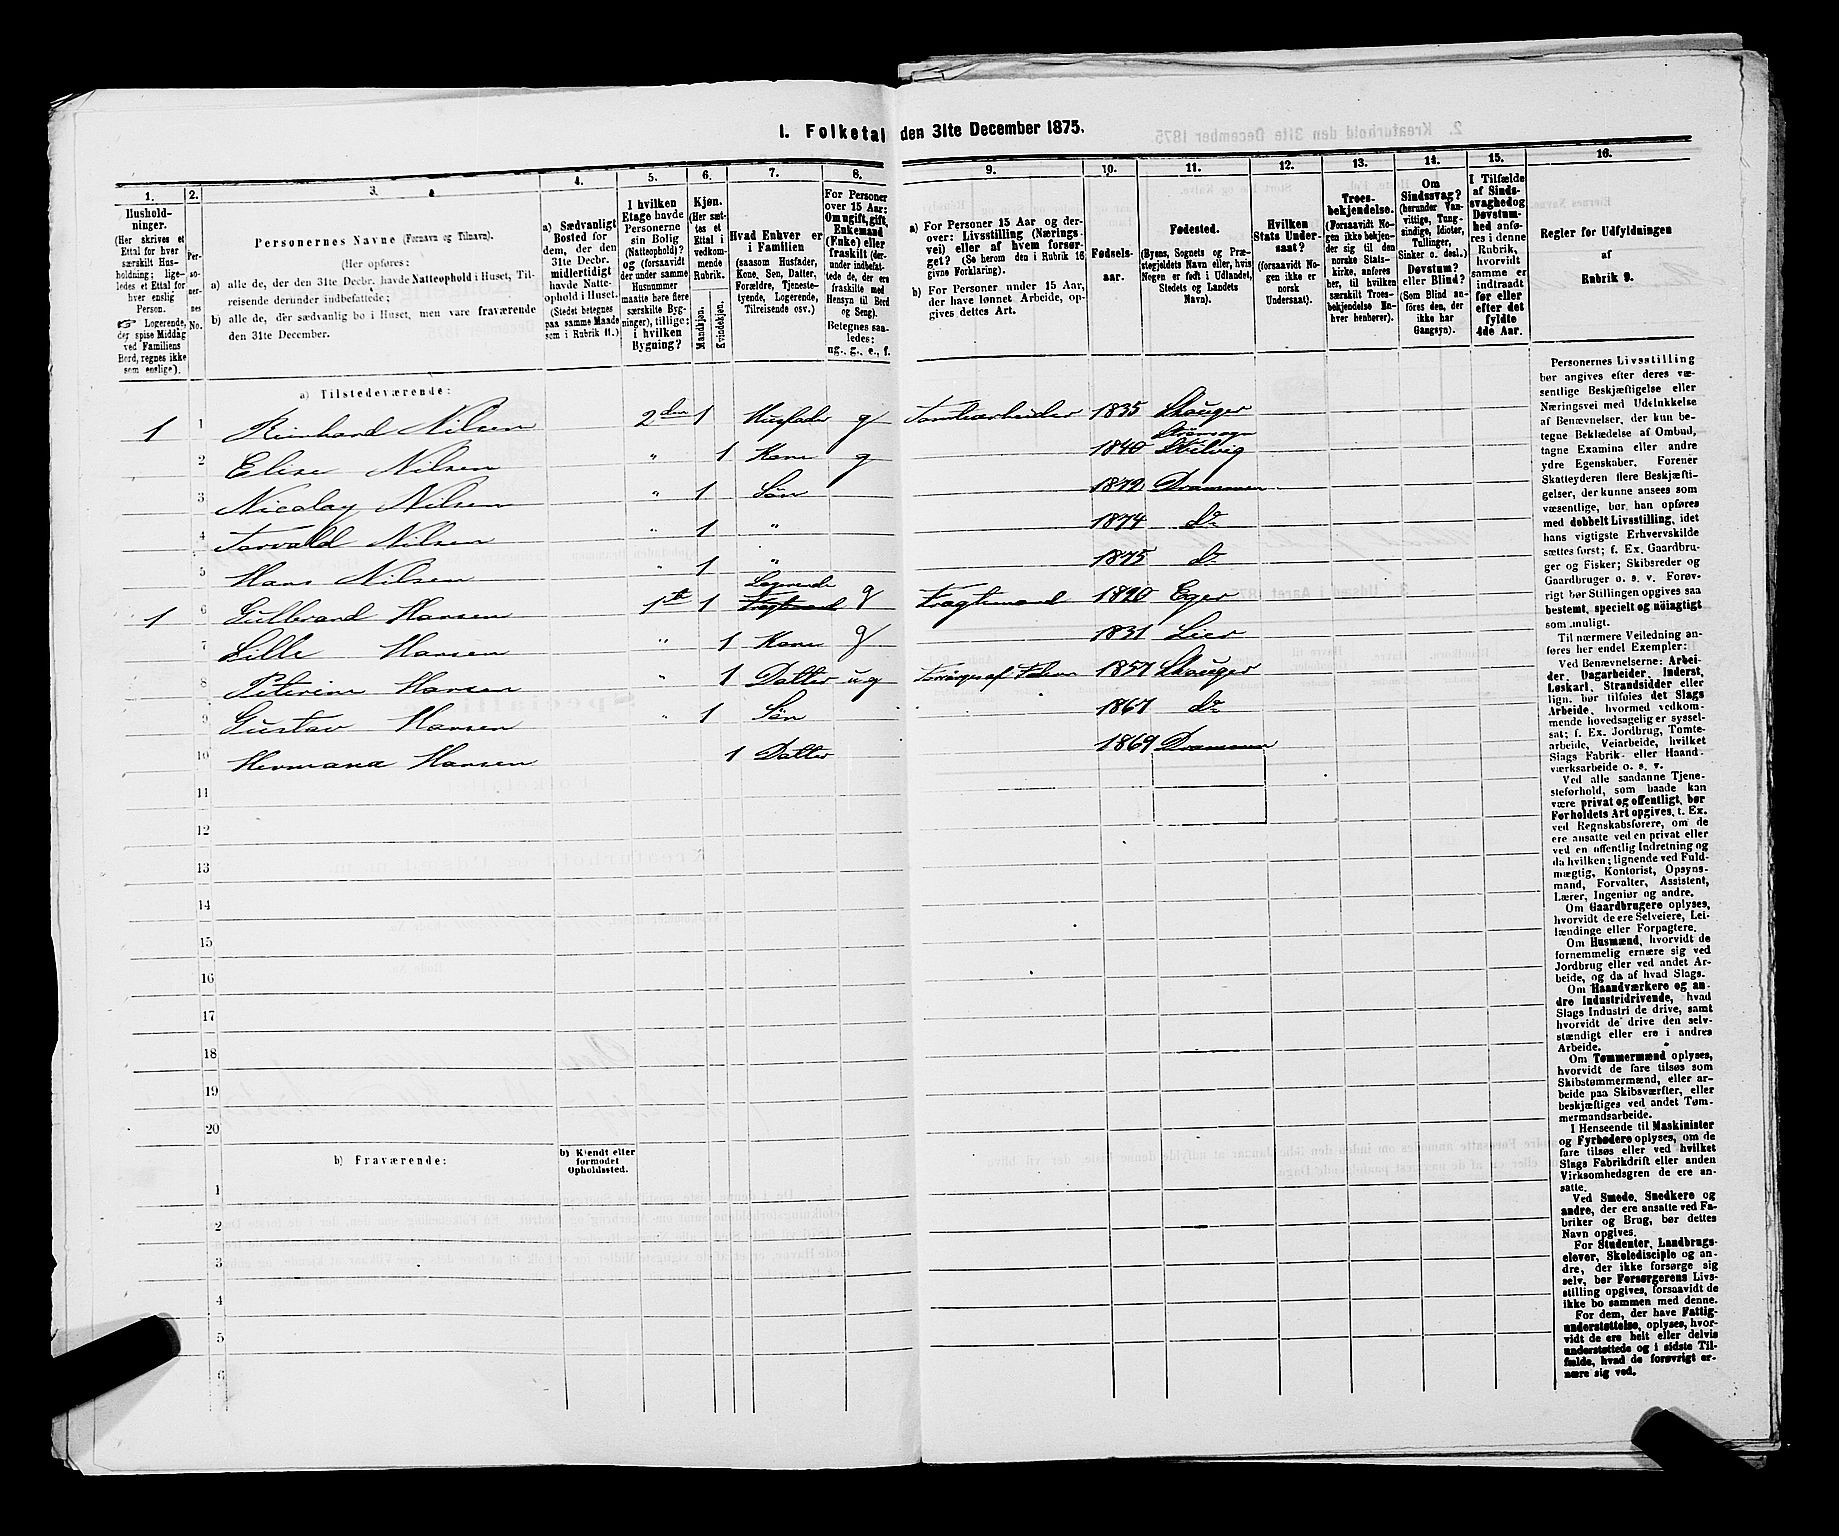 I. Folketal den 31te December 1875.
1.
2.
3.
4.
5.
6.
7.
8.
9.
10.
11.
12.
13.
14.
15.
16.
Husholdninger.
(Her skrives et
Ettal for hver
særskilt Husholdning;
ligeledes et Ettal for
hver enslig
Person.
☞ Logerende,
der spise Middag
ved Familiens
Bord, regnes ikke
som enslige).
Personernes No.
Personernes Navne (Fornavn og Tilnavn).
(Her opføres:
a) alle de, der den 31te Decbr. havde Natteophold i Huset, Tilreisende derunder indbefattede;
b) alle de, der sædvanlig bo i Huset, men vare fraværende
den 31te December.
a) Sædvanligt
Bosted for
dem, der den
31te Decbr.
midlertidigt
havde Natteophold i Huset.
(Stedet betegnes
paa samme Maade
som i Rubrik 11.)
I hvilken
Etage havde
Personerne
sin Bolig
(Natteophold)?
og (forsaavidt
der under samme
Husnummer
maatte høre flere
særskilte Bygninger), tillige:
i hvilken
Bygning?
Kjøn.
(Her sættes et
Ettal i
vedkommende
Rubrik.
Mandkjøn.
Kvindekjøn.
Hvad Enhver er
i Familien
(saasom Husfader,
Kone, Søn, Datter,
Forældre, Tjenestetyende, Logerende,
Tilreisende osv.)
For Personer
over 15 Aar:
Om ugift, gift,
Enkemand
(Enke) eller
fraskilt (derunder indbefattede de, der ere
fraskilte med
Hensyn til Bord
og Seng).
Betegnes saaledes:
ug., g., e., f.
a) For Personer 15 Aar og derover: Livsstilling (Næringsvei) eller af hvem forsørget? (Se herom den i Rubrik 16
givne Forklaring).
b) For Personer under 15 Aar,
der have lønnet Arbeide, opgives dettes Art.
Fødselsaar.
Fødested.
(Byens, Sognets og Præstegjeldets Navn eller, hvis
Nogen er født i Udlandet,
Stedets og Landets
Navn).
Hvilken
Stats Undersaat?
(forsaavidt Nogen ikke er
norsk
Undersaat).
Troesbekjendelse.
(Forsaavidt Nogen ikke bekjender sig til den
norske Statskirke, anføres
her, til hvilken
særskilt Troesbekjendelse Enhver henhører).
Om
Sindssvag?
(herunder Vanvittige, Tungsindige, Idioter,
Tullinger,
Sinker o. desl.)
Døvstum?
eller Blind?
(Som Blind anføres den, der
ikke har
Gangsyn).
I Tilfælde
af Sindssvaghed og
Døvstumhed anføres i denne
Rubrik,
hvorvidt
samme er
indtraadt
før eller
efter det
fyldte
4de Aar.
Regler for Udfyldningen
af
Rubrik 9.
a) Tilstedeværende:
1 1 Reinhard Nilsen 2den 1 Husfader g Tomtearbeider 1835 Skouger
2 Elise Nilsen " 1 Kone g 1840 Strømsogn Skilvig
3 Nicolay Nilsen " 1 Søn 1872 Drammen
4 Torvald Nilsen " 1 " 1874 do
5 Hans Nilsen " 1 " 1875 do
1 6 Gulbrand Hansen 1ste 1 Logerende Fragtmand g Fragtmand 1820 Eger
7 Lille Hansen " 1 Kone g 1831 Lier
8 Peterine Hansen " 1 Datter ug Forsørges af Faderen 1857 Skouger
9 Gustav Hansen " 1 Søn 1867 do
10 Hermana Hansen 1 Datter 1869 Drammen
11
12
13
14
15
16
17
18
19
20
b) Fraværende:
b) Kjendt eller
formodet
Opholdssted.
1
2
3
4
5
6
Personernes Livsstilling
bør angives efter deres væsentlige Beskjæftigelse eller
Næringsvei med Udelukkelse
af Benævnelser, der kun betegne Beklædelse af Ombud,
tagne Examina eller andre
ydre Egenskaber. Forener
Skatteyderen flere Beskjæftigelser, der kunne ansees som
væsentlige, bør han opføres
med dobbelt Livsstilling, idet
hans vigtigste Erhvervskilde
sættes først; f. Ex. Gaardbruger og Fisker; Skibsreder og
Gaardbruger o. s. v. Forøvrigt bør Stillingen opgives saa
bestemt, specielt og nöiagtigt
som muligt.
Til nærmere Veiledning anføres her endel Exempler:
Ved Benævnelserne: Arbeider, Dagarbeider, Inderst,
Løskarl, Strandsidder eller
lign. bør tilføies det Slags
Arbeide, hvormed vedkommende hovedsagelig er sysselsat; f. Ex. Jordbrug, Tomtearbeide, Veiarbeide, hvilket
Slags Fabrik- eller Haandværksarbeide o. s. v.
Ved alle saadanne Tjenesteførhold, som baade kan
være privat og offentligt, bør
Forholdets Art opgives, t. Ex.
ved Regnskabsførere, om de
ere ansatte ved en privat eller
ved en offentlig Indretning og
da hvilken; lignende ved Fuldmægtig, Kontorist, Opsynsmand, Forvalter, Assistent,
Lærer, Ingeniør og andre.
Om Gaardbrugere oplyses,
hvorvidt de ere Selveiere, Leilændinge eller Forpagtere.
Om Husmænd, hvorvidt de
fornemmelig ernære sig ved
Jordbrug eller ved andet Arbeide, og da af hvad Slags.
Om Haandværkere og andre Industridrivende, hvad
Slags Industri de drive, samt
hvorvidt de drive den selvstændigt eller ere i andres
Arbeide.
Om Tømmermænd oplyses,
hvorvidt de fare tilsøs som
Skibstømmermænd, eller arbeide paa Skibsværfter, eller
beskjæftiges ved andet Tømmermandsarbeide.
I Henseende til Maskinister
og Fyrbødere oplyses, om de
fare tilsøs eller ved hvilket
Slags Fabrikdrift eller anden
Virksomhedsgren de ere ansatte.
Ved Smede, Snedkere og
andre, der ere ansatte ved Fabriker og Brug, bør dettes
Navn opgives.
For Studenter, Landbrugselever, Skoledisciple og andre, der ikke forsørge sig
selv, bør Forsørgerens Livsstilling opgives, forsaavidt de
ikke bo sammen med denne.
For dem, der have Fattigunderstøttelse, oplyses, hvorvidt de ere helt eller delvis
understøttede og i sidste Tilfælde, hvad de forøvrigt ernære sig ved.